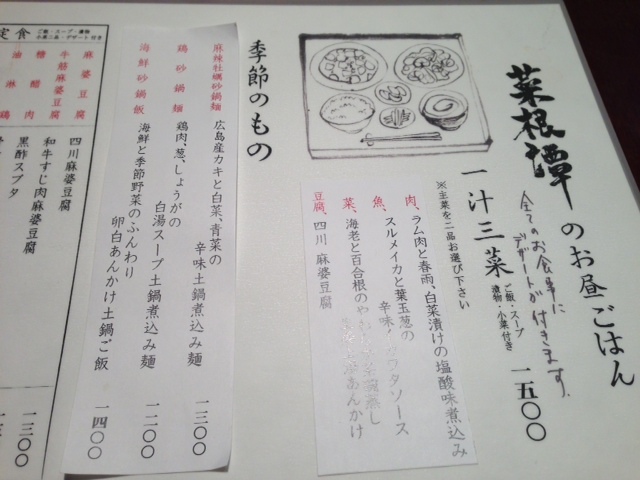 菜根譚のお昼ごはん
全てのお食事に
デザートが付きます。
一汁三菜
ご飯・スープ
漬物・小菜付き
一五〇〇
※主菜を二品お選び下さい
肉、ラム肉と春雨、白菜漬けの塩酸味煮込み
魚、スルメイカと葉玉葱の
辛味
ソース
菜、海老と百合根の
蒸し
あんかけ
豆腐、四川 麻婆豆腐
季節のもの
麻辣牡蠣砂鍋麺 広島産カキと白菜、青菜の
辛味土鍋煮込み麺 一三〇〇
鶏砂鍋麺 鶏肉、葱、しょうがの
白湯スープ土鍋煮込み麺 一二〇〇
海鮮砂鍋飯 海鮮と季節野菜のふんわり
卵白あんかけ土鍋ご飯 一四〇〇
定食
ご飯・スープ・漬物
小菜二品・デザート付き
麻婆豆腐 四川麻婆豆腐
牛筋麻婆豆腐 和牛すじ肉麻婆豆腐 一三〇〇
糖醋肉 黒酢スブタ
油淋鶏